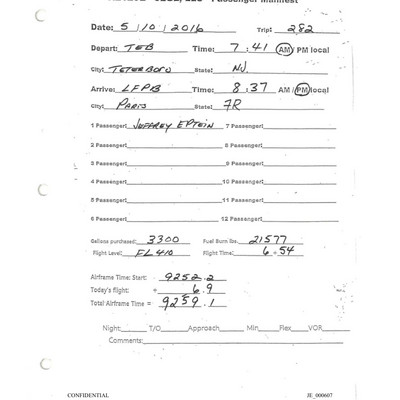 Passenger Manifest
Date: 5 / 10 / 2016 Trip: 282
Depart: TEB Time: 7 : 41 AM / PM local
City: TETERBORO State: NJ.
Arrive: LFPB Time: 8 : 37 AM / PM local
City: PARIS State: FR
1 Passenger: JEFFREY EPTEIN 7 Passenger:
2 Passenger: 8 Passenger:
3 Passenger: 9 Passenger:
4 Passenger: 10 Passenger:
5 Passenger: 11 Passenger:
6 Passenger: 12 Passenger:
Gallons purchased: 3300 Fuel Burn lbs. 21577
Flight Level: FL410 Flight Time: 6 + 54
Airframe Time: Start: 9252.2
Today's flight: + 6.9
Total Airframe Time = 9259.1
Night: T/O Approach Min Flex VOR
Comments:
CONFIDENTIAL JE_000607